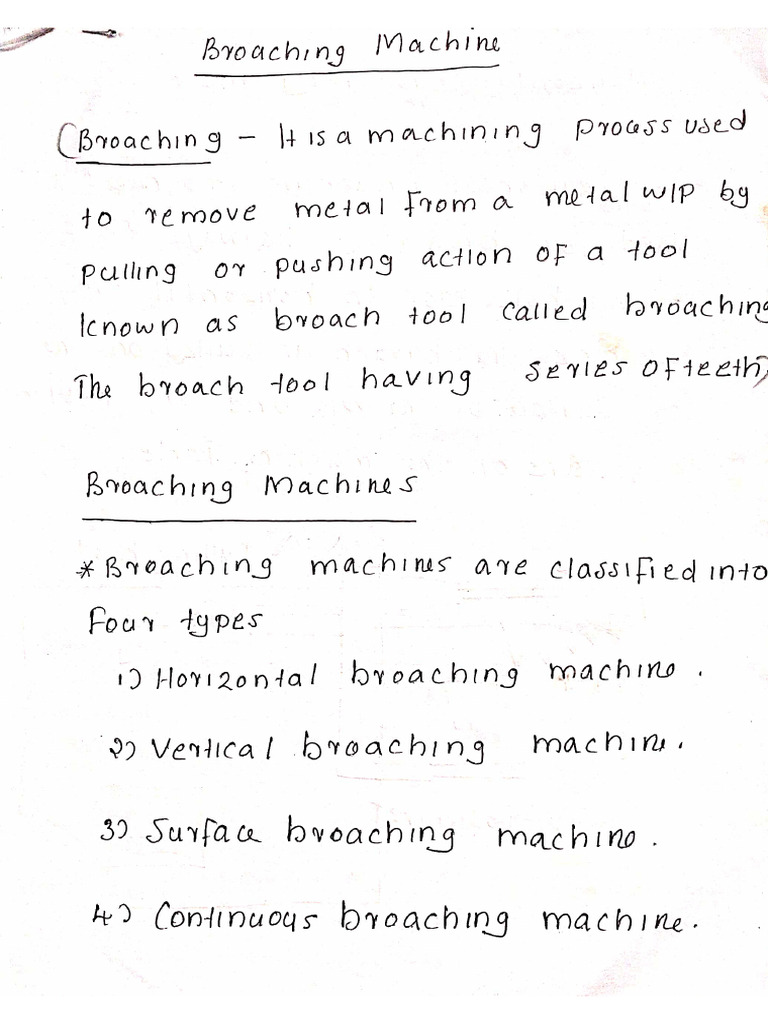 Broaching Machine
(Broaching - It is a machining process used
to remove metal from a metal W/P by
pulling or pushing action of a tool
known as broach tool called broaching
The broach tool having series of teeth)
Broaching Machines
* Broaching machines are classified into
four types
1) Horizontal broaching machine.
2) Vertical broaching machine.
3) Surface broaching machine.
4) Continuous broaching machine.